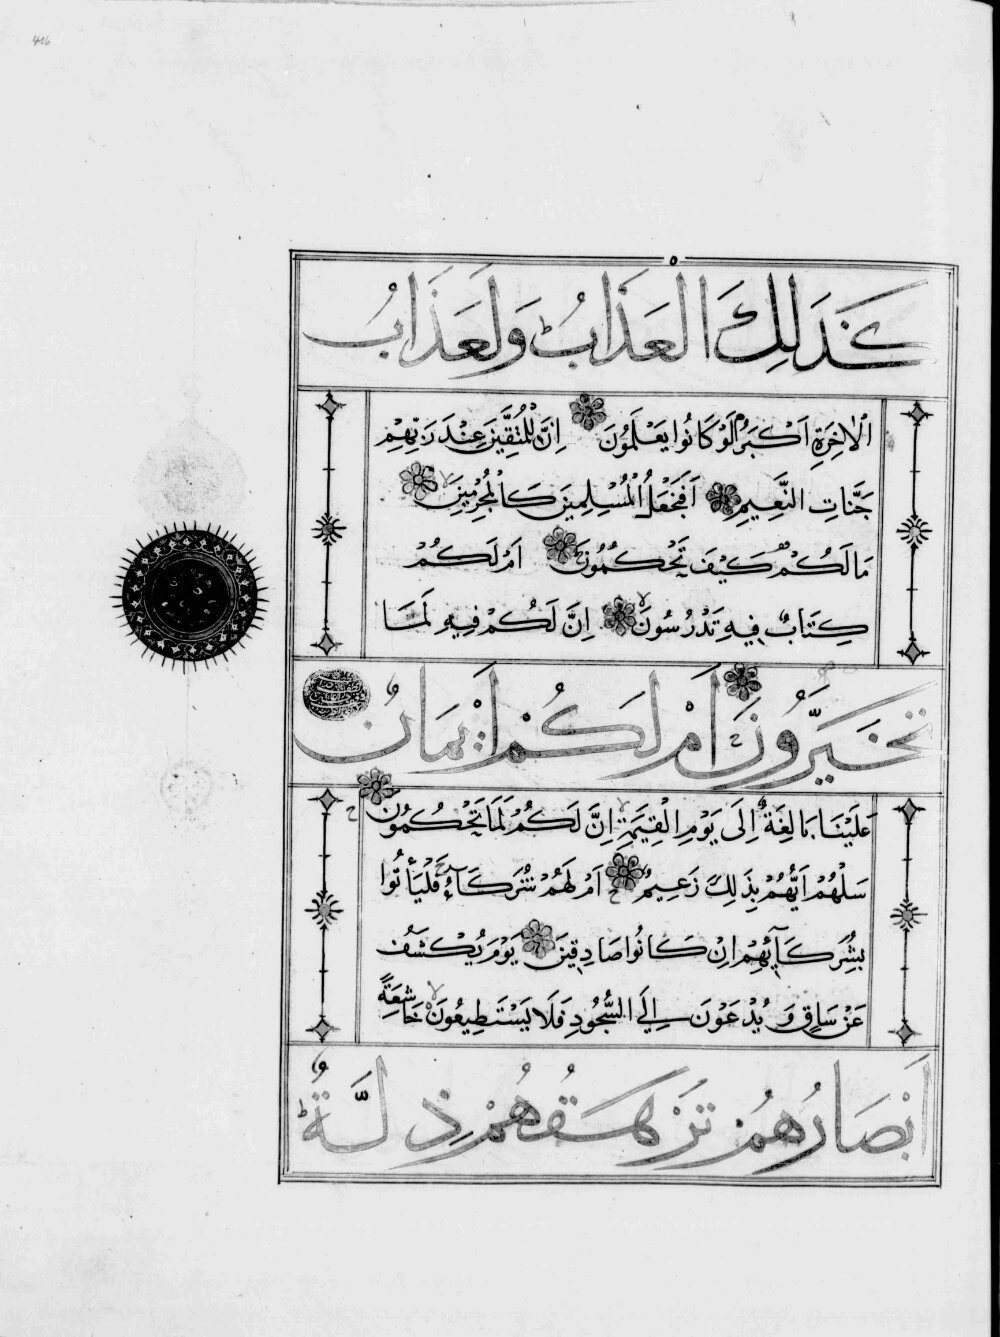 416
كَذَلِكَ الْعَذَابُ وَلَعَذَابُ
الْاٰخِرَةِ اَكْبَرُ لَوْ كَانُوا يَعْلَمُونَ اِنَّ لِلْمُتَّقِينَ عِنْدَ رَبِّهِمْ
جَنَّاتِ النَّعِيمِ اَفَنَجْعَلُ الْمُسْلِمِينَ كَالْمُجْرِمِينَ
مَا لَكُمْ كَيْفَ تَحْكُمُونَ اَمْ لَكُمْ
كِتَابٌ فِيهِ تَدْرُسُونَ اِنَّ لَكُمْ فِيهِ لَمَا
تَخَيَّرُونَ اَمْ لَكُمْ اَيْمَانٌ
عَلَيْنَا بَالِغَةٌ اِلَى يَوْمِ الْقِيَمَةِ اِنَّ لَكُمْ لَمَا تَحْكُمُونَ
سَلْهُمْ اَيُّهُمْ بِذَلِكَ زَعِيمٌ اَمْ لَهُمْ شُرَكَآءُ فَلْيَأْتُوا
بِشُرَكَآئِهِمْ اِنْ كَانُوا صَادِقِينَ يَوْمَ يُكْشَفُ
عَنْ سَاقٍ وَيُدْعَوْنَ اِلَى السُّجُودِ فَلَا يَسْتَطِيعُونَ خَاشِعَةً
اَبْصَارُهُمْ تَرْهَقُهُمْ ذِلَّةٌ